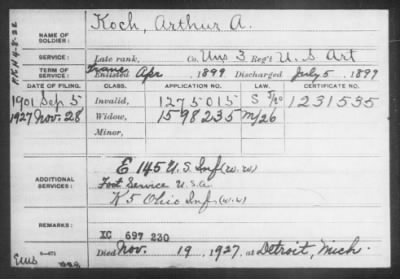 Koch, Arthur A.
NAME OF SOLDIER:
SERVICE: Late rank, Co. Uns 3 Reg't U. S Art
Trans
Enlisted Apr 1899 Discharged July 5 1899
DATE OF FILING. CLASS. APPLICATION NO. LAW. CERTIFICATE NO.
1901 Sep 5 Invalid, 1275015 S 1231535
1927 Nov. 28 Widow, 1598235 M/26
Minor,
ADDITIONAL SERVICES: E 145 U. S. Inf (W.W)
Foot Service U.S.A.
K 5 Ohio Inf. (W.W)
REMARKS:
XC 697 230
Died Nov. 19, 1927, at Detroit, Mich.